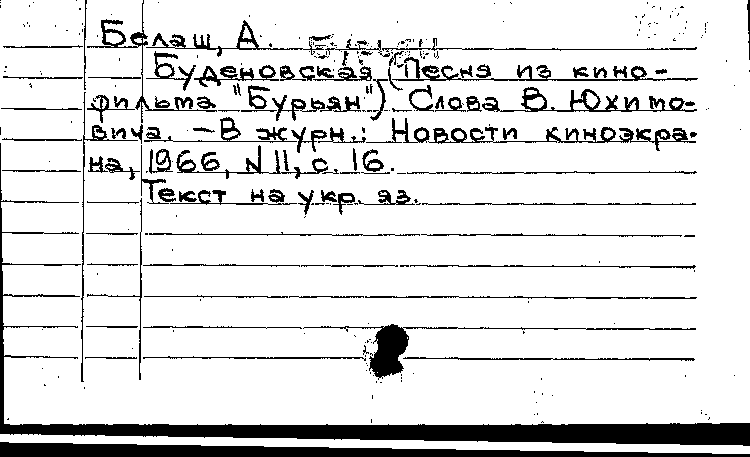 Белаш, А. Бурьян
Буденовская (Песня из кино-
фильма "Бурьян"). Слова В. Юхимо-
вича. – В журн.: Новости киноэкра-
на, 1966, N 11, с. 16.
Текст на укр. яз.